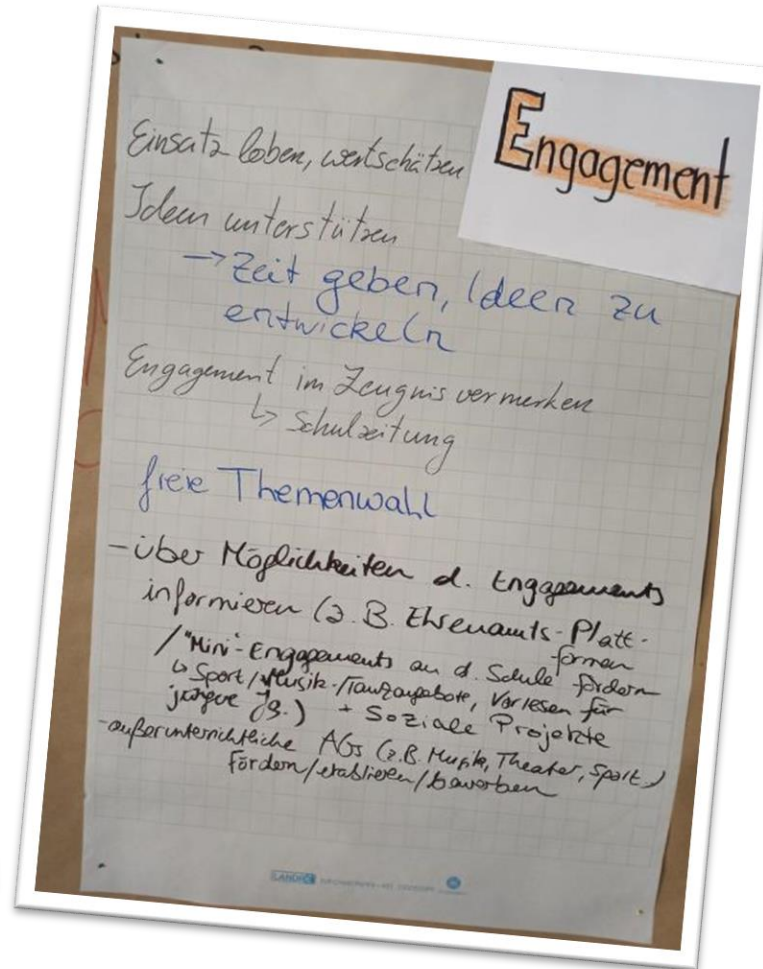 Engagement
Einsatz loben, wertschätzen
Ideen unterstützen
→ Zeit geben, Ideen zu
entwickeln
Engagement im Zeugnis vermerken
↳ Schulzeitung
freie Themenwahl
- über Möglichkeiten d. Engagements
informieren (z.B. Ehrenamts-Platt-
formen
/"Mini"-Engagements an d. Schule fördern
↳ Sport/Musik-/Tanzangebote, Vorlesen für
jüngere Jg.) + Soziale Projekte
- außerunterrichtliche AGs (z.B. Musik, Theater, Sport..)
fördern/etablieren/bewerben